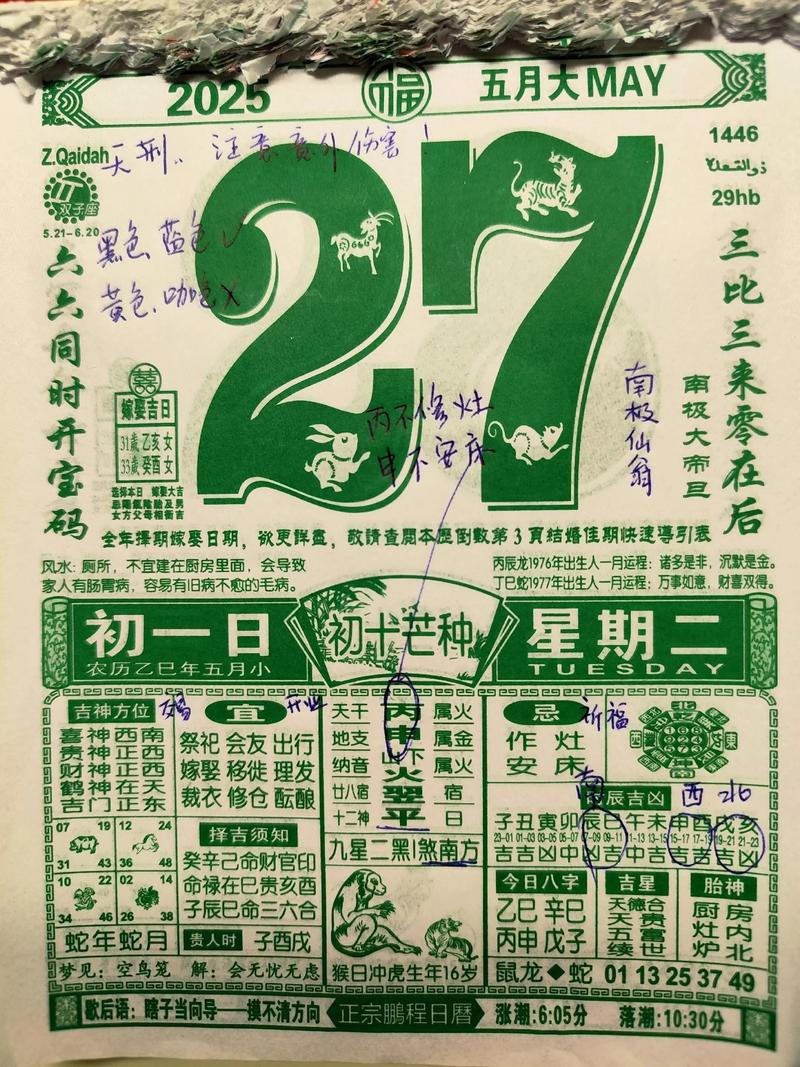 2025 福 五月大MAY
Z.Qaidah
天刑.. 注意意外伤害！
1446
ذو القعدة
29hb
双子座
5.21–6.20
27
黑色 蓝色 ✓
黄色、咖色 ✗
六六同时开宝码
三比三来零在后
南极大帝旦
南极仙翁
囍
嫁娶吉日
31歲 乙亥 女
33歲 癸酉 女
丙不修灶
申不安床
全年擇期嫁娶日期，欲更詳盡，敬請查閱本歷倒數第3頁結婚佳期快速導引表
风水：厕所，不宜建在厨房里面，会导致
家人有肠胃病，容易有旧病不愈的毛病。
丙辰龙1976年出生人一月运程：诸多是非，沉默是金。
丁巳蛇1977年出生人一月运程：万事如意，财喜双得。
初一日
农历乙巳年五月小
初十芒种
星期二
TUESDAY
吉神方位
喜神西南
贵神正西
财神正西
鹤神在天
吉门正东
宜 开业
祭祀 会友 出行
嫁娶 移徙 理发
裁衣 修仓 酝酿
天干 丙 属火
地支 申 属金
纳音 山下火 属火
廿八宿 翌 宿
十二神 平 日
忌 祈福
作灶
安床
北
东
南
西
南 西 北
辰吉凶
子 丑 寅 卯 辰 巳 午 未 申 酉 戌 亥
23-01 01-03 03-05 05-07 07-09 09-11 11-13 13-15 15-17 17-19 19-21 21-23
吉 吉 凶 中 凶 吉 中 吉 吉 吉 吉 凶
07 19
31 43
12 24
36 48
10 22
34 46
02 14
26 38
择吉须知
癸辛己命财官印
命禄在巳贵亥酉
子辰巳命三六合
九星二黑 煞南方
今日八字
乙巳 辛巳
丙申 戊子
吉星
天德合
天贵
五富
续世
胎神
厨房
灶内
炉北
蛇年蛇月
贵人时 子酉戌
猴日冲虎生年16岁
鼠龙◆蛇 01 13 25 37 49
梦见：空鸟笼 解：会无忧无虑
歇后语：瞎子当向导——摸不清方向
正宗鹏程日曆
涨潮：6:05分 落潮：10:30分